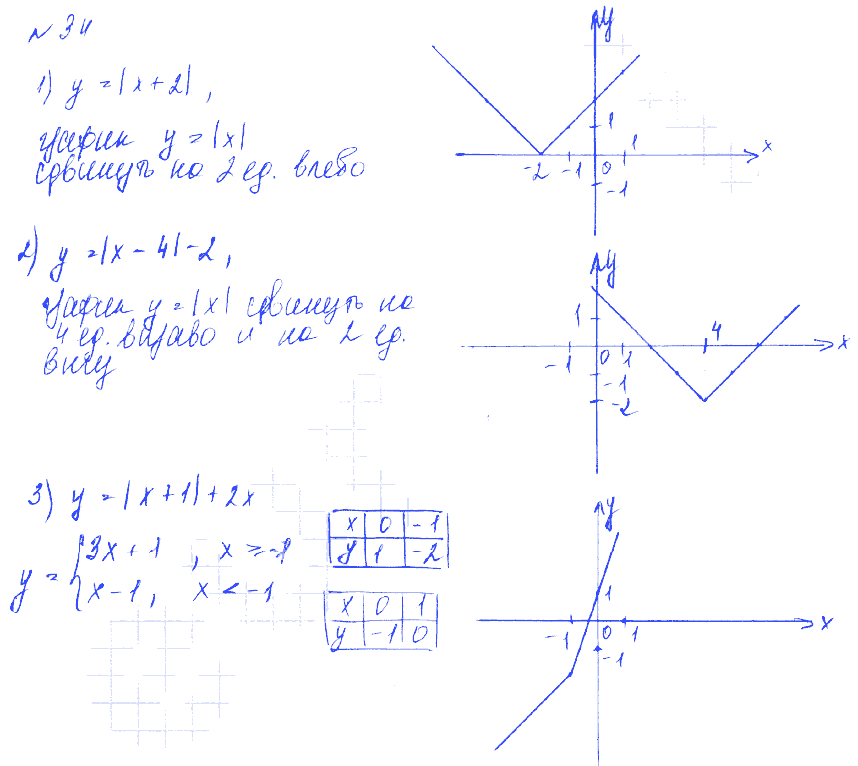 № 34
1) y = |x + 2|,
график y = |x|
сдвинуть на 2 ед. влево
y
1
1
x
-2
-1
0
-1
2) y = |x - 4| - 2,
график y = |x| сдвинуть на
4 ед. вправо и на 2 ед.
вниз
y
1
4
-1
0
1
x
-1
-2
3) y = |x + 1| + 2x
y = { 3x + 1, x ≥ -1
x - 1, x < -1
x 0 -1
y 1 -2
x 0 1
y -1 0
y
1
-1
0
1
x
-1